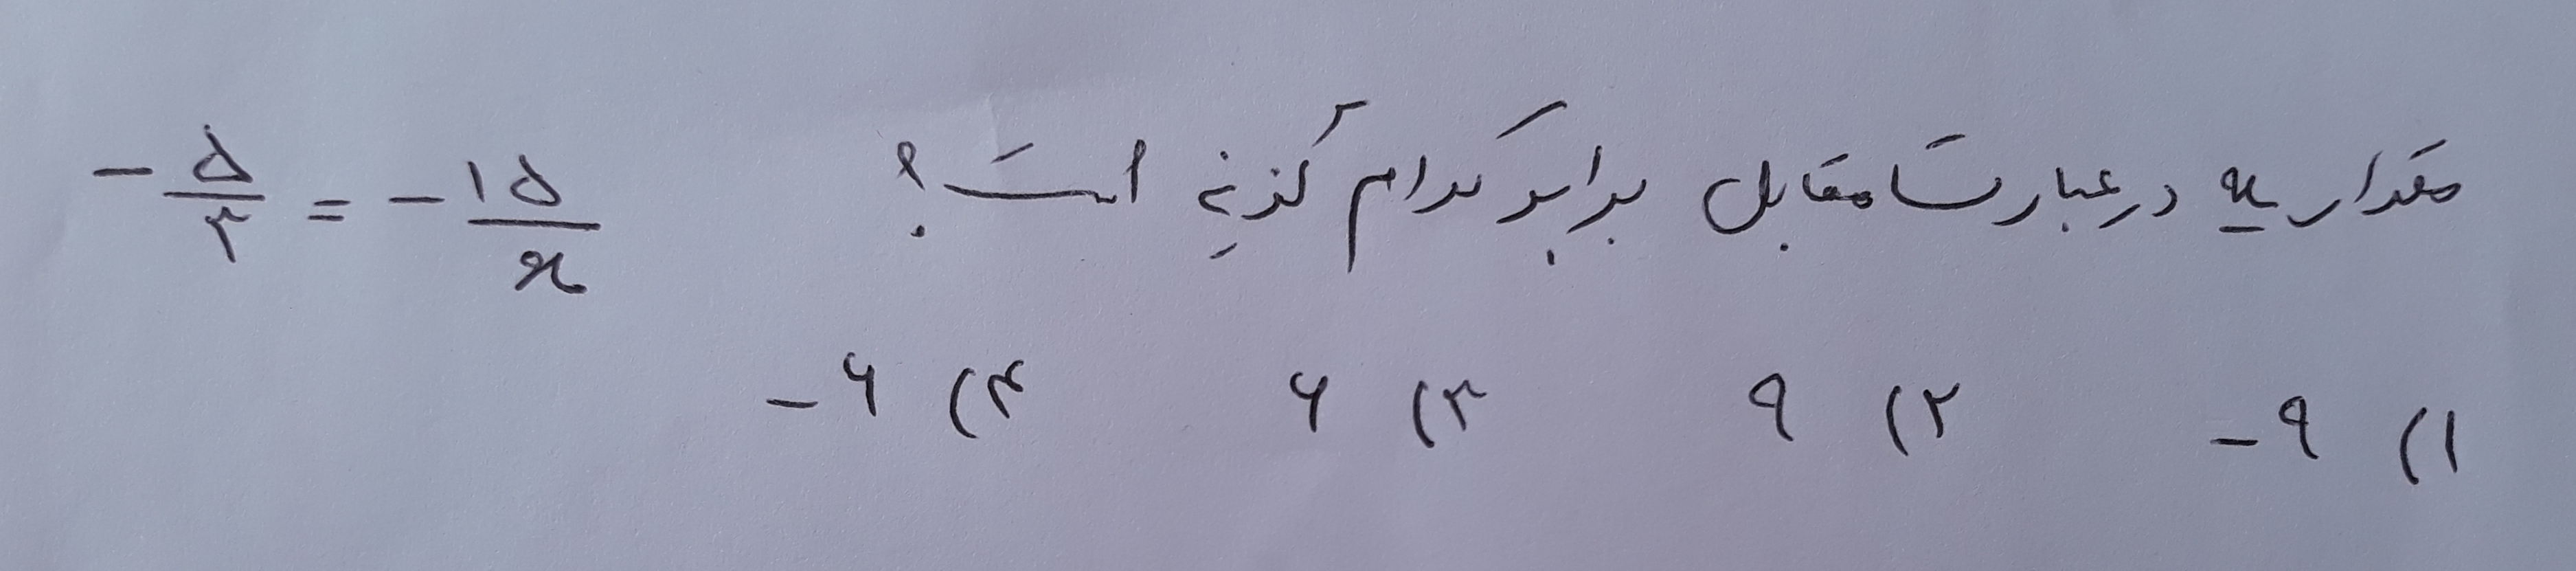 مقدار x در عبارت مقابل برابر کدام گزینه است؟ -۵/۳ = -۱۵/x
۱) -۹ ۲) ۹ ۳) ۶ ۴) -۶